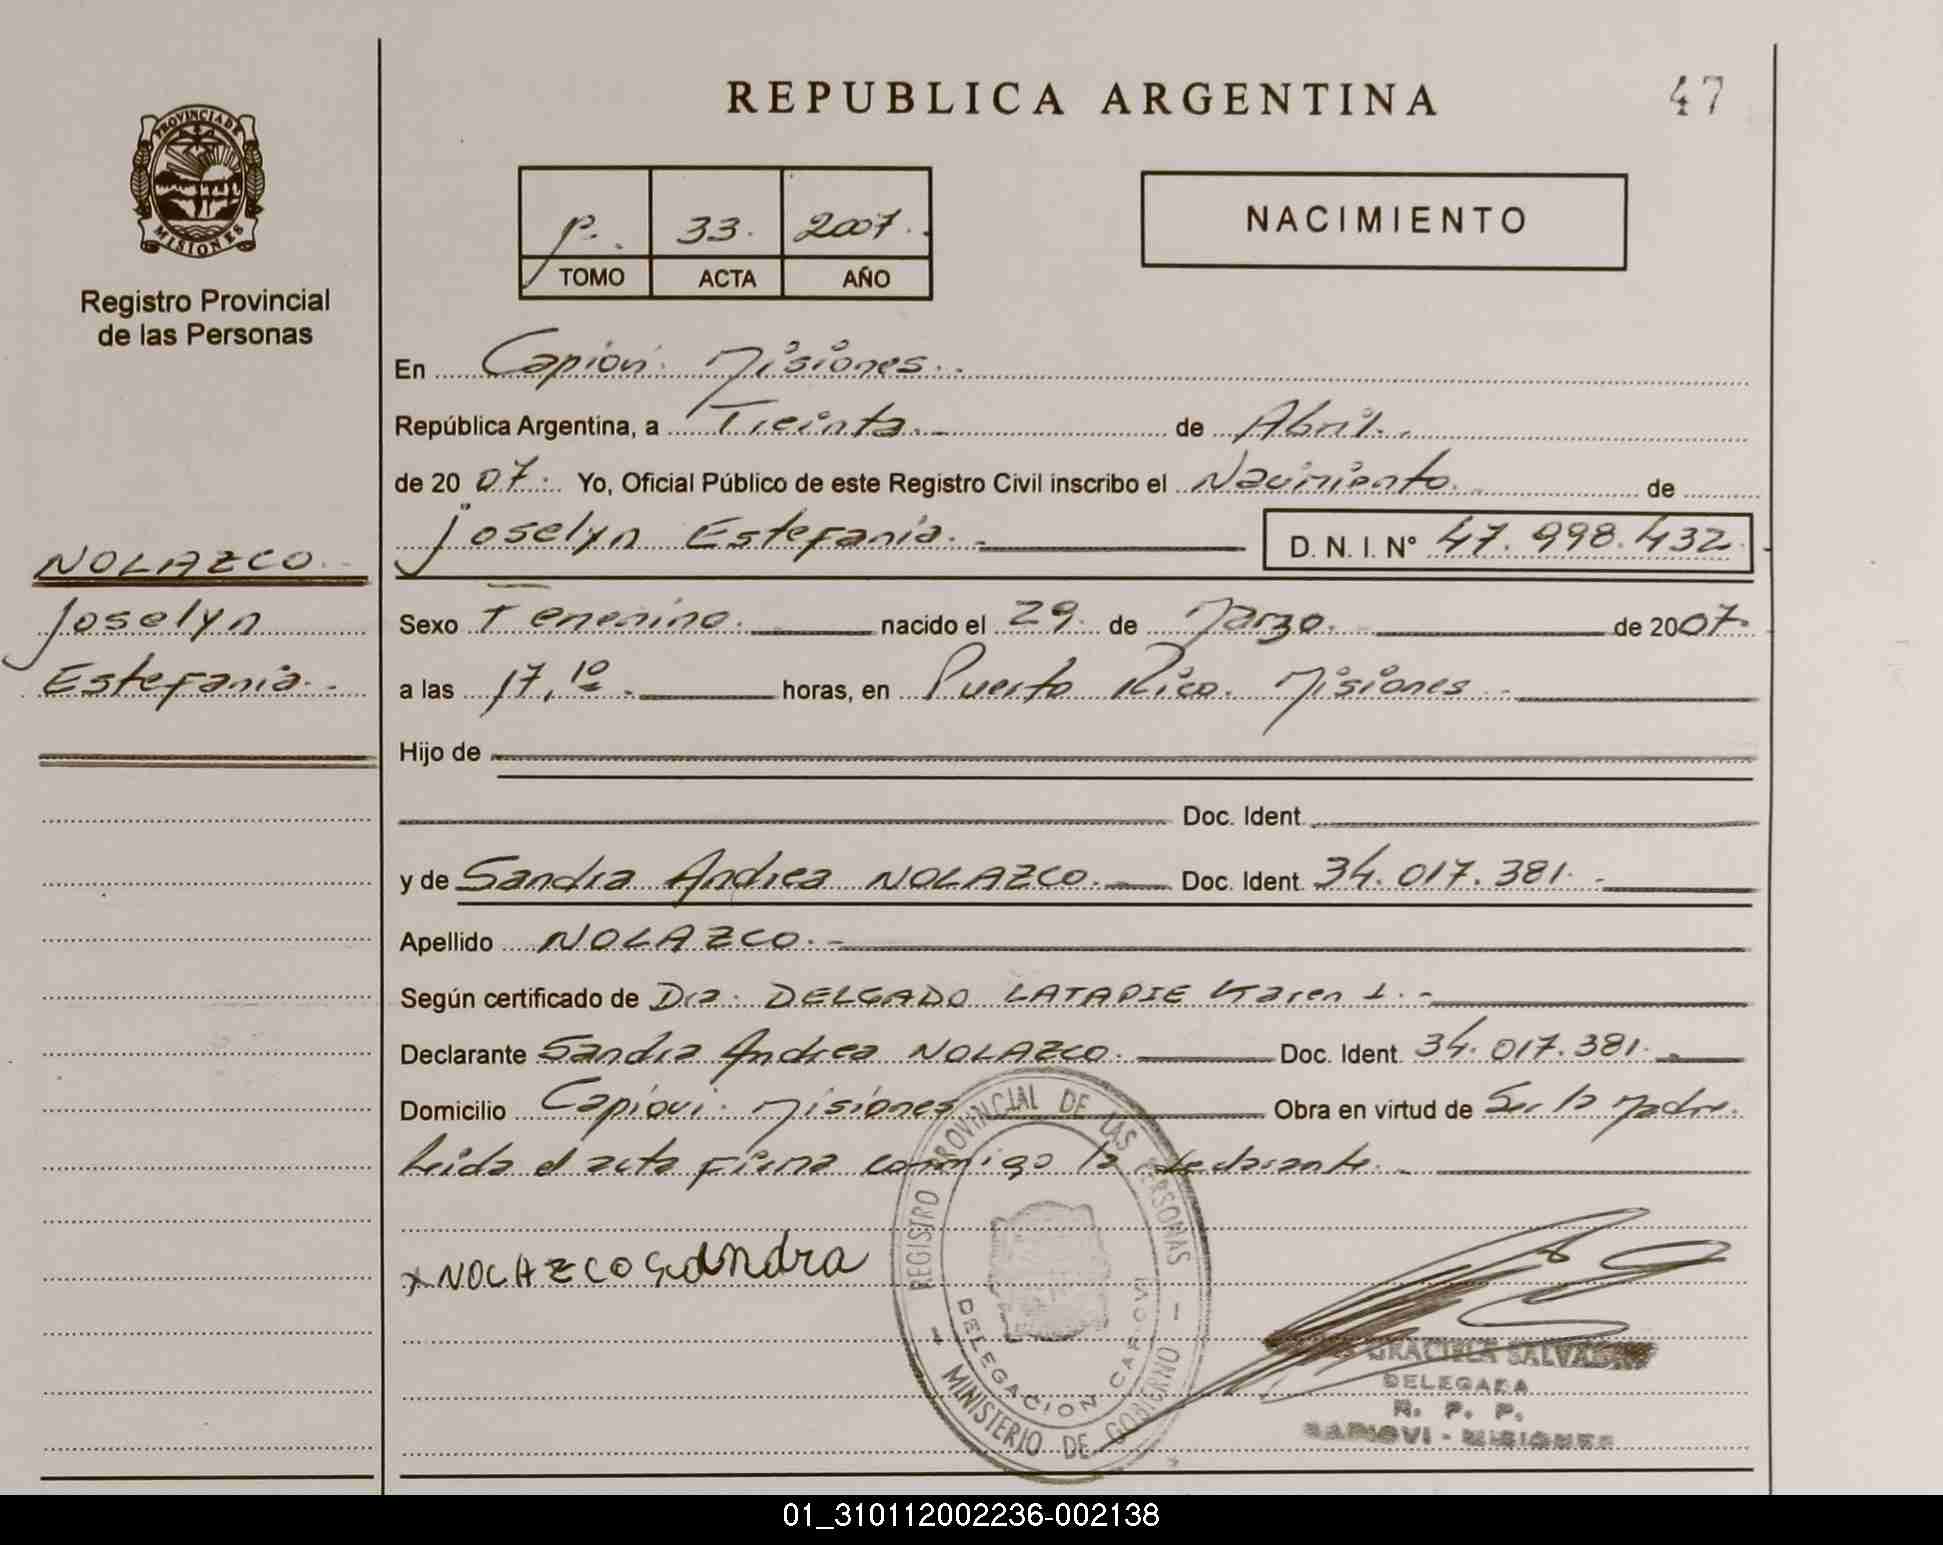 REPUBLICA ARGENTINA
47
PROVINCIA DE
MISIONES
Registro Provincial
de las Personas
P. 33. 2007.
TOMO ACTA AÑO
NACIMIENTO
En Capioví. Misiones.
República Argentina, a Treinta. de Abril.
de 20 07. Yo, Oficial Público de este Registro Civil inscribo el Nacimiento. de
Joselyn Estefanía. D. N. I. N° 47.998.432.
NOLAZCO.
Joselyn
Estefanía.
Sexo Femenino. nacido el 29. de Marzo. de 2007.
a las 17,10 horas, en Puerto Rico. Misiones
Hijo de
Doc. Ident.
y de Sandra Andrea NOLAZCO. Doc. Ident. 34.017.381.
Apellido NOLAZCO.
Según certificado de Dra. DELGADO LATAPIE Karen I.
Declarante Sandra Andrea NOLAZCO. Doc. Ident. 34.017.381.
Domicilio Capioví. Misiones Obra en virtud de Ser la madre.
Leida el acta firma conmigo la declarante.
x NOLAZCO Sandra
REGISTRO PROVINCIAL DE LAS PERSONAS
MINISTERIO DE GOBIERNO
DELEGACION CAPIOVI
GRACIELA
DELEGADA
R. P. P.
CAPIOVI - MISIONES
01_310112002236-002138